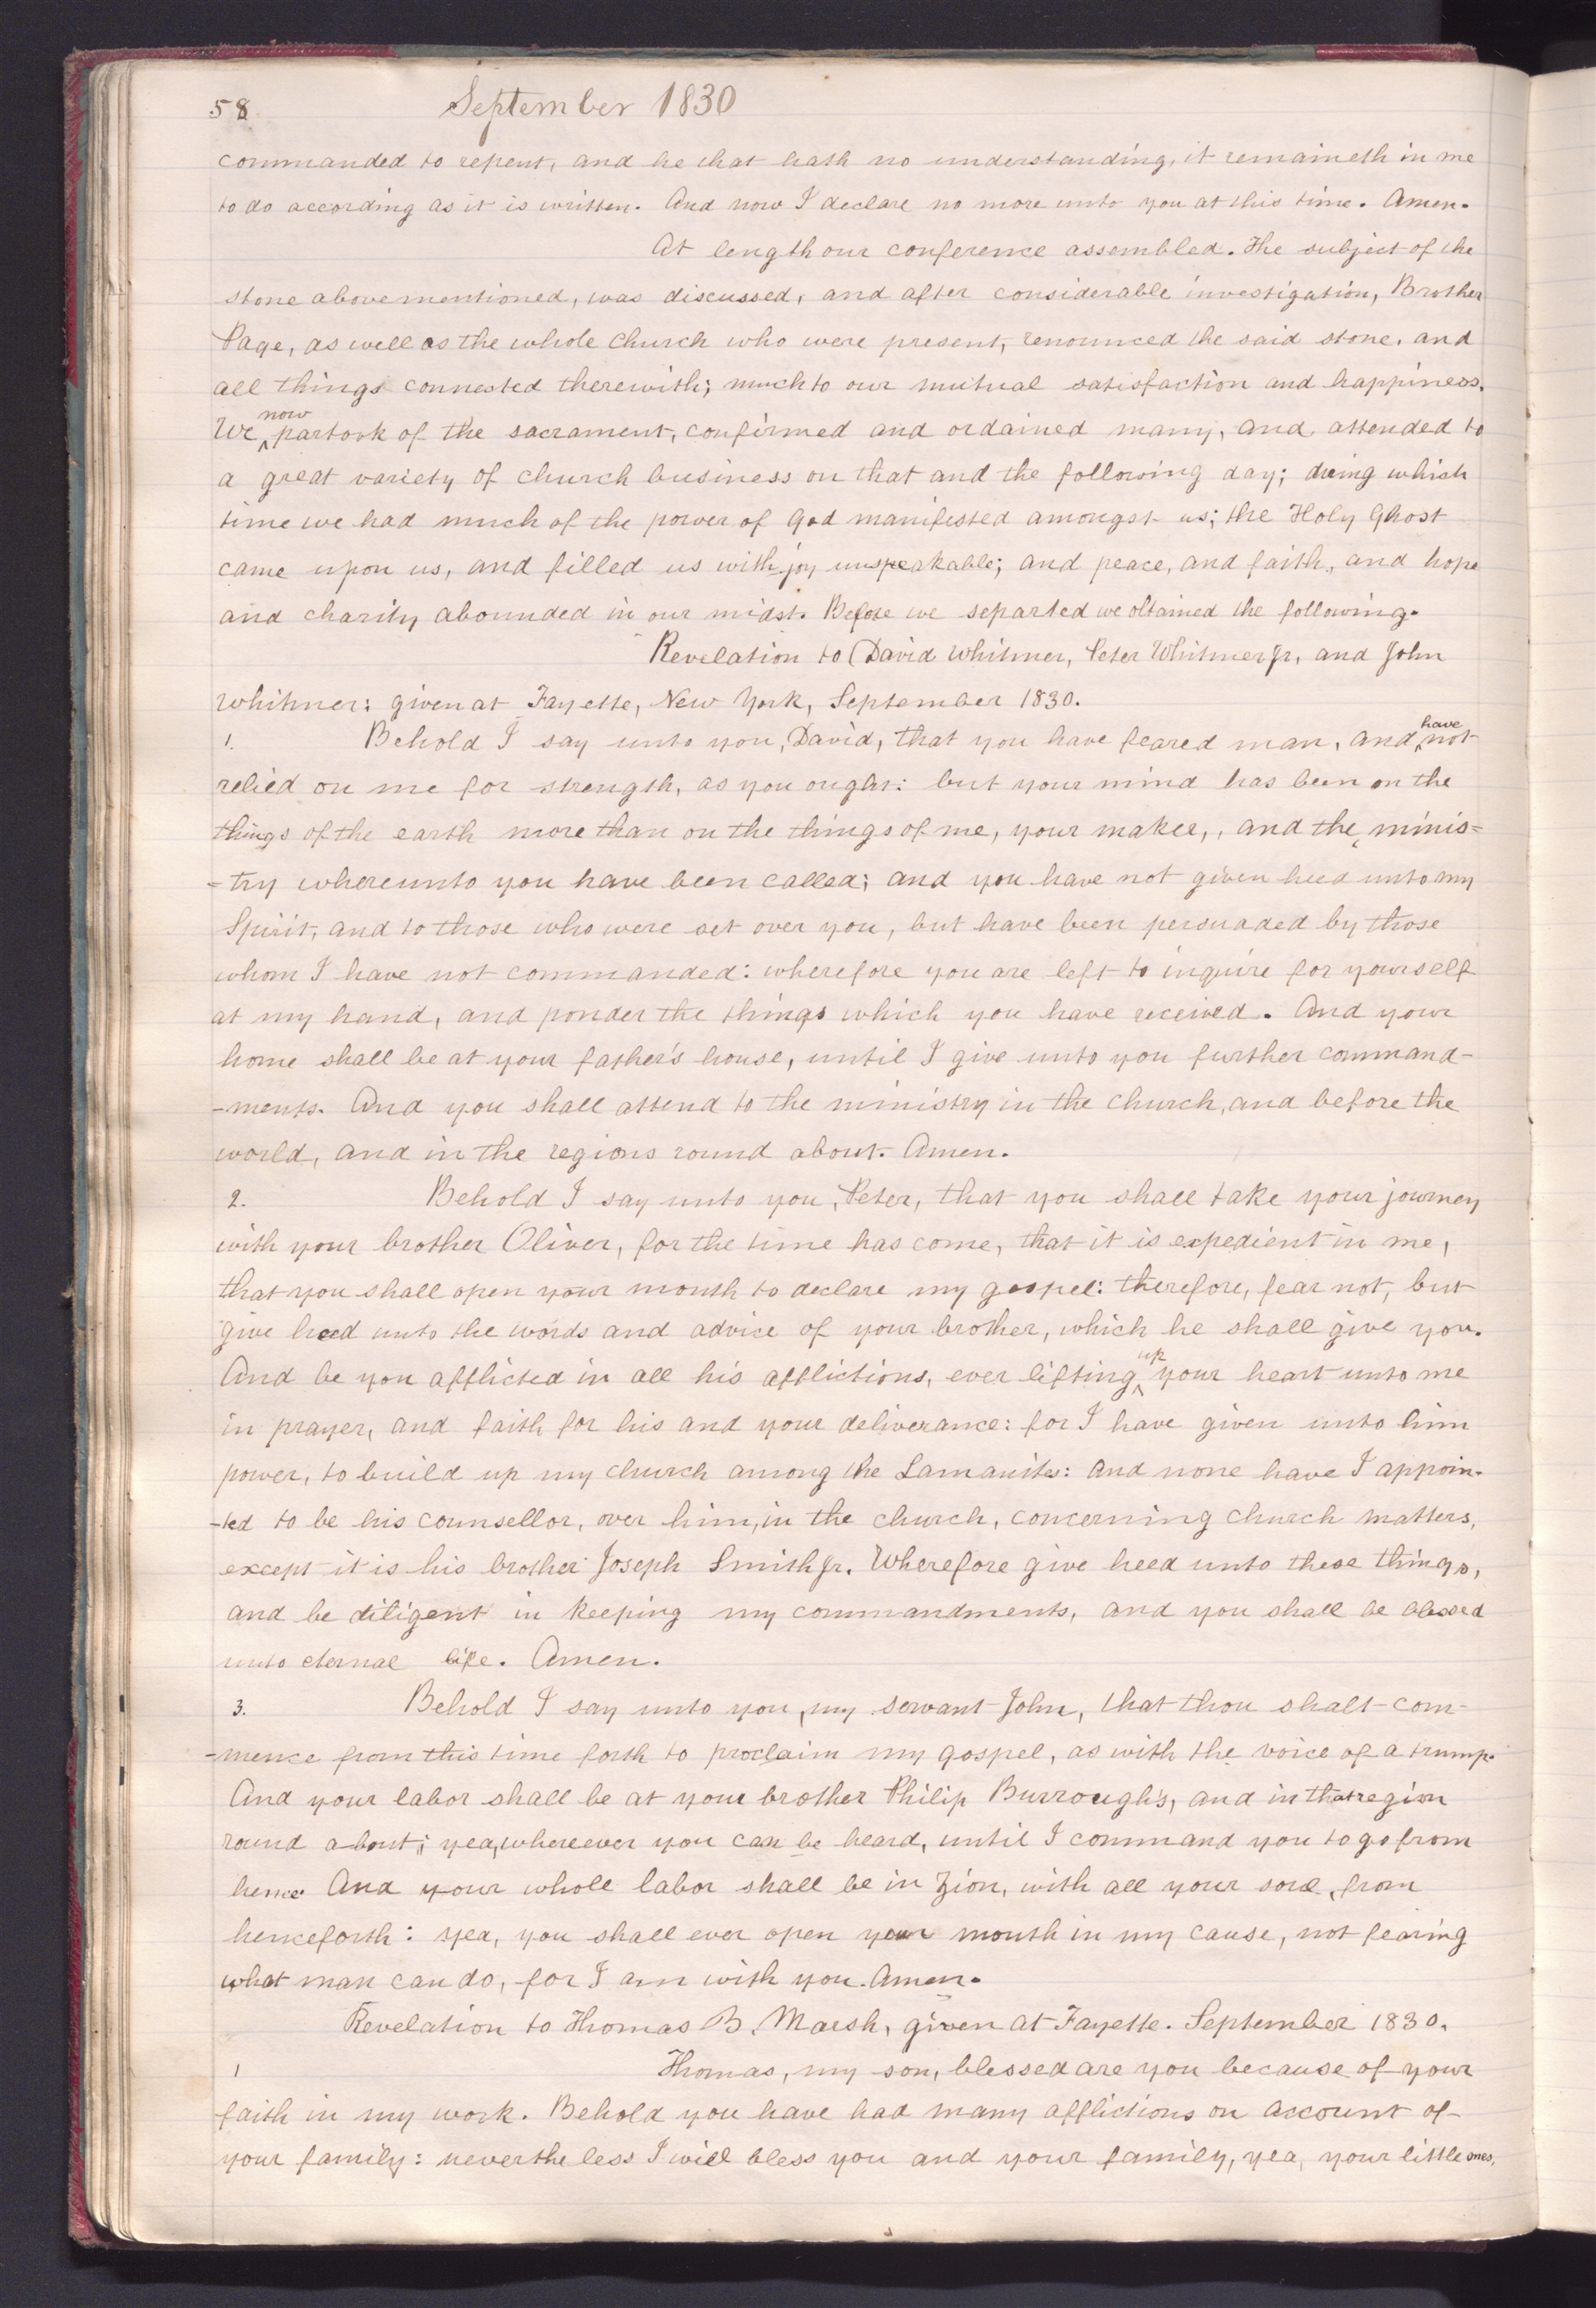 58 September 1830
commanded to repent, and he that hath no understanding, it remaineth in me
to do according as it is written. And now I declare no more unto you at this time. Amen.
At length our conference assembled. The subject of the
stone above mentioned, was discussed, and after considerable investigation, Brother
Page, as well as the whole church who were present, renounced the said stone, and
all things connected therewith; much to our mutual satisfaction and happiness.
We now partook of the sacrament, confirmed and ordained many, and attended to
a great variety of church business on that and the following day; during which
time we had much of the power of God manifested amongst us; the Holy Ghost
came upon us, and filled us with joy unspeakable; and peace, and faith, and hope
and charity abounded in our midst. Before we separted we obtained the following.
Revelation to David Whitmer, Peter Whitmer Jr, and John
Whitmer: given at Fayette, New York, September 1830.
1. Behold I say unto you, David, that you have feared man, and have not
relied on me for strength, as you ought: but your mind has been on the
things of the earth more than on the things of me, your maker,, and the minis=
=try whereunto you have been called; and you have not given heed unto my
Spirit, and to those who were set over you, but have been persuaded by those
whom I have not commanded: wherefore you are left to inquire for yourself
at my hand, and ponder the things which you have received. And your
home shall be at your father's house, until I give unto you further command-
-ments. And you shall attend to the ministry in the church, and before the
world, and in the regions round about. Amen.
2. Behold I say unto you, Peter, that you shall take your journey
with your brother Oliver, for the time has come, that it is expedient in me,
that you shall open your mouth to declare my gospel: therefore, fear not, but
give heed unto the words and advice of your brother, which he shall give you.
And be you afflicted in all his afflictions, ever lifting up your heart unto me
in prayer, and faith for his and your deliverance: for I have given unto him
power, to build up my church among the Lamanites: and none have I appoin-
-ted to be his counsellor, over him, in the church, concerning church matters,
except it is his brother Joseph Smith Jr. Wherefore give heed unto these things,
and be diligent in keeping my commandments, and you shall be blessed
unto eternal life. Amen.
3. Behold I say unto you, my servant John, that thou shalt com-
-mence from this time forth to proclaim my gospel, as with the voice of a trump.
And your labor shall be at your brother Philip Burrough's, and in that region
round about; yea, whereever you can be heard, until I command you to go from
hence. And your whole labor shall be in Zion, with all your soul, from
henceforth: yea, you shall ever open your mouth in my cause, not fearing
what man can do, for I am with you. Amen.
Revelation to Thomas B. Marsh, given at Fayette. September 1830.
1 Thomas, my son, blessed are you because of your
faith in my work. Behold you have had many afflictions on account of
your family: nevertheless I will bless you and your family, yea, your little ones,